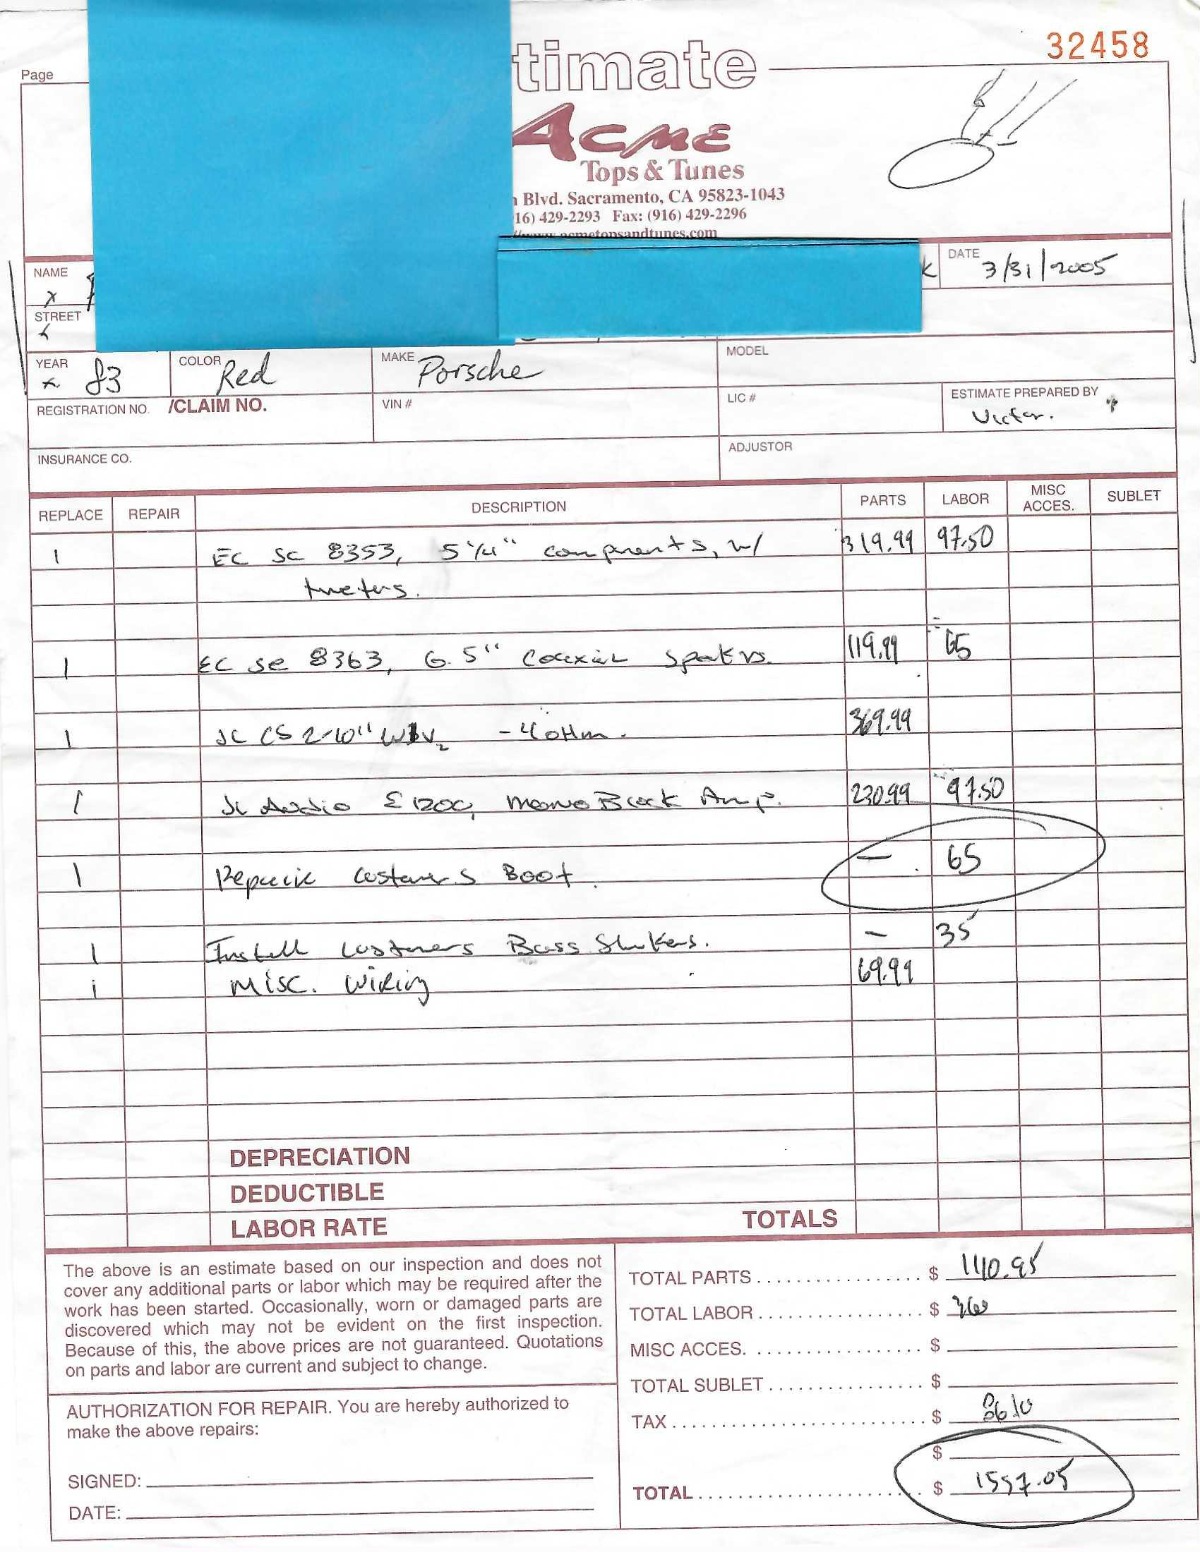 32458
timate
Page
ACME
Tops & Tunes
Blvd. Sacramento, CA 95823-1043
16) 429-2293 Fax: (916) 429-2296
//www.acmetopsandtunes.com
NAME
x
DATE 3/31/2005
STREET
YEAR x 83
COLOR Red
MAKE Porsche
MODEL
REGISTRATION NO. /CLAIM NO.
VIN #
LIC #
ESTIMATE PREPARED BY
Victor.
INSURANCE CO.
ADJUSTOR
REPLACE REPAIR DESCRIPTION PARTS LABOR MISC ACCES. SUBLET
1 EC SC 8353, 5 1/4" components, w/ 319.99 97.50
tweeters.
1 EC se 8363, 6.5" Coaxial Speakers. 119.99 65
1 JL CS 2-10" - 4 oHm. 369.99
1 JL Audio E1200, Mono Block Amp. 230.99 97.50
1 Customers Boot. — 65
1 Install Customers Bass Shakers. — 35
1 Misc. Wiring 69.99
DEPRECIATION
DEDUCTIBLE
LABOR RATE TOTALS
The above is an estimate based on our inspection and does not
cover any additional parts or labor which may be required after the
work has been started. Occasionally, worn or damaged parts are
discovered which may not be evident on the first inspection.
Because of this, the above prices are not guaranteed. Quotations
on parts and labor are current and subject to change.
AUTHORIZATION FOR REPAIR. You are hereby authorized to
make the above repairs:
SIGNED:
DATE:
TOTAL PARTS $ 1110.95
TOTAL LABOR $ 360
MISC ACCES. $
TOTAL SUBLET $
TAX $ 86.10
$
TOTAL $ 1557.05